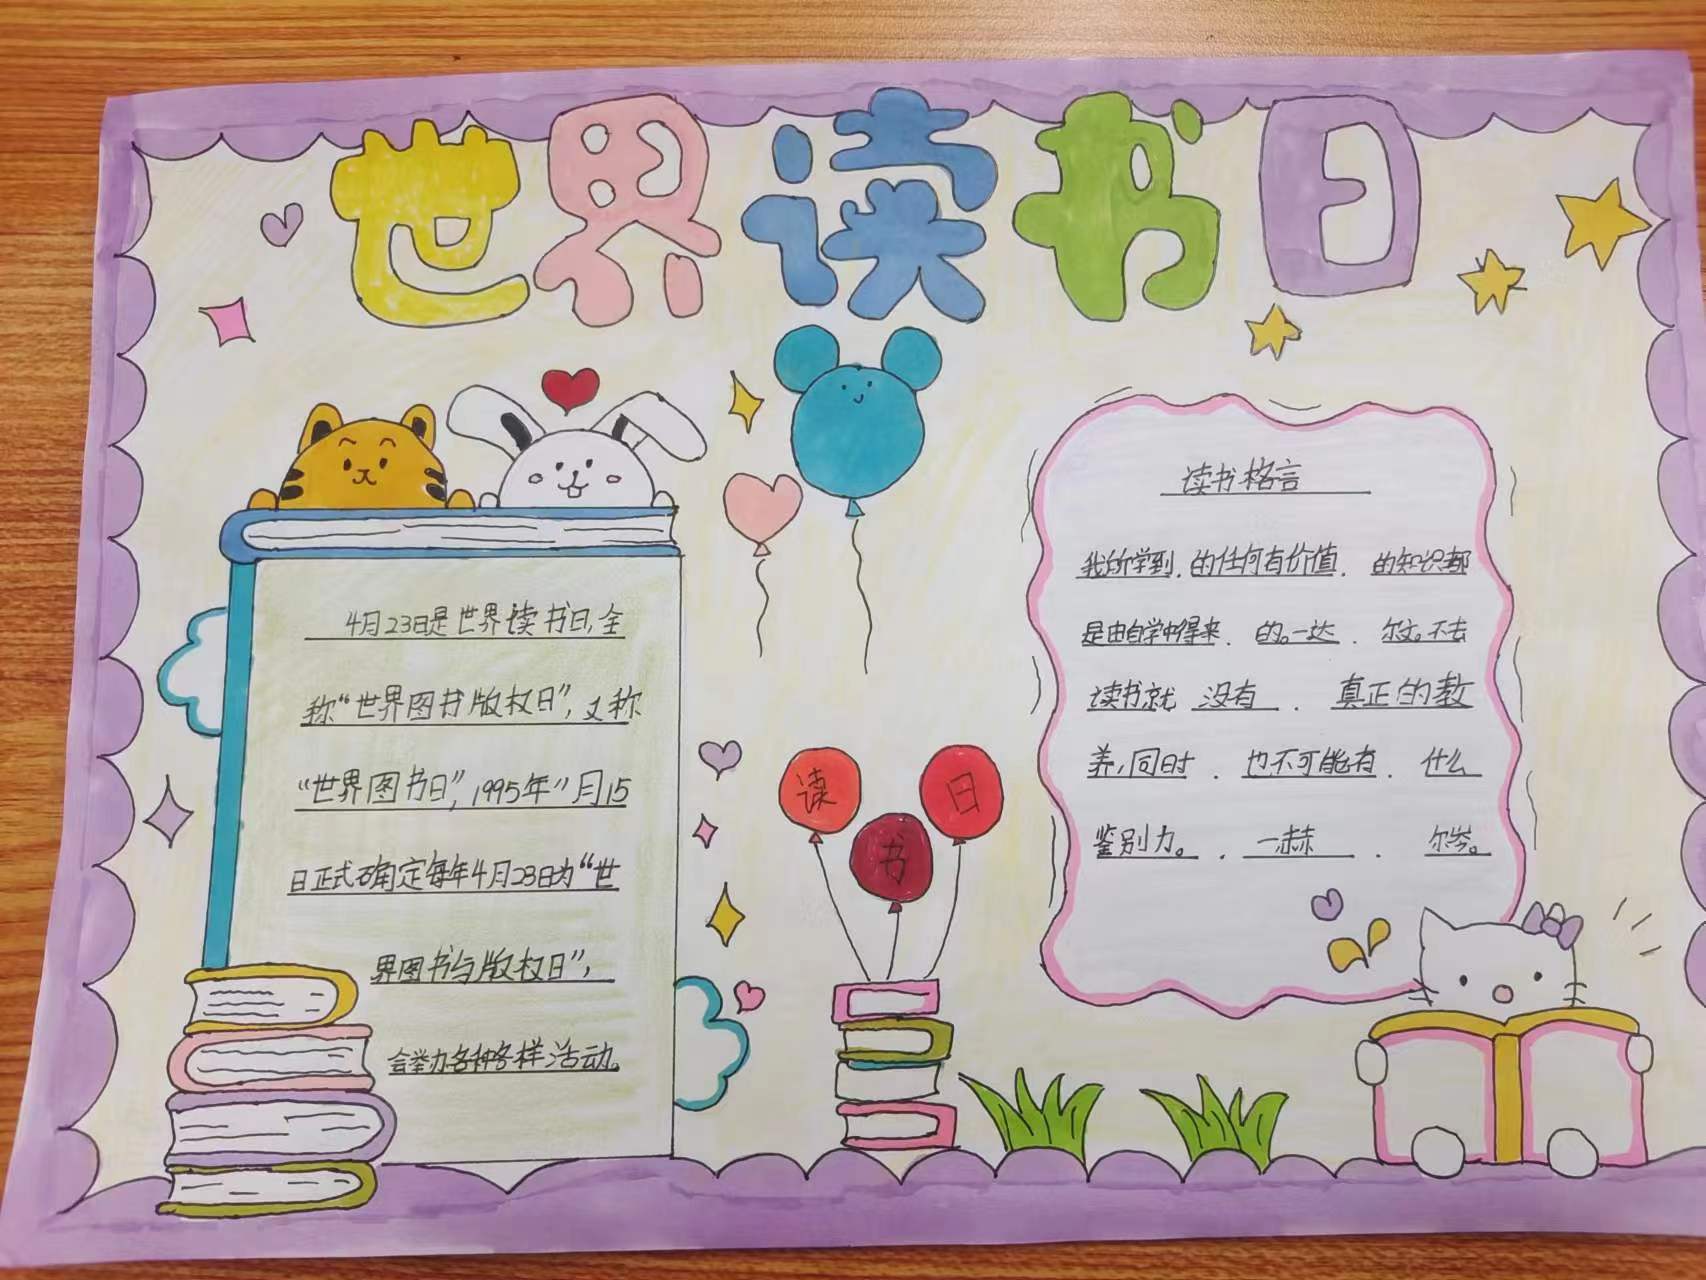 世界读书日
4月23日是世界读书日,全
称“世界图书版权日”,又称
“世界图书日”,1995年11月15
日正式确定每年4月23日为“世
界图书与版权日”,
会举办各种各样活动。
读 书 日
读书格言
我所学到.的任何有价值.的知识都
是由自学中得来.的。一达.尔文。不去
读书就 没有.真正的教
养,同时.也不可能有.什么
鉴别力。.一赫.尔岑。